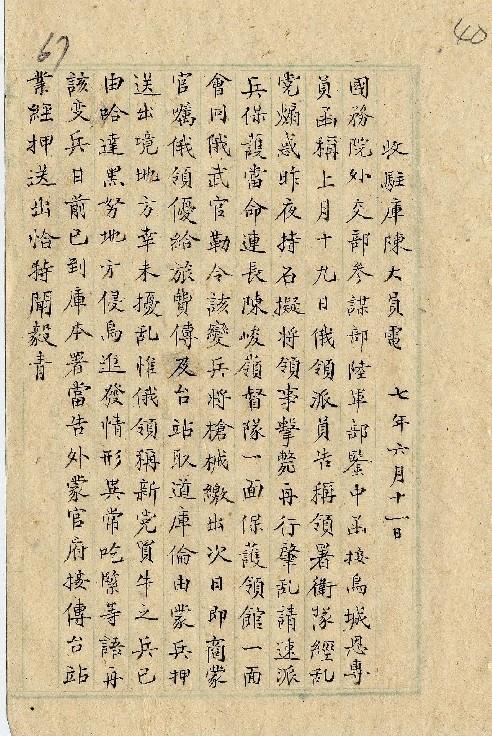 67
40
收駐庫陳大員電 七年六月十一日
國務院外交部參謀部陸軍部鑒中函接烏城恩專
員函稱上月十九日俄領派員告稱領署衛隊經亂
党煽惑昨夜持石擬將領事擊斃再行肇乱請速派
兵保護當命連長陳峻嶺督隊一面保護領館一面
會同俄武官勒令該變兵將槍械繳出次日即商蒙
官囑俄領優給旅費傳及台站取道庫倫由蒙兵押
送出境地方幸未擾乱惟俄領稱新党買牛之兵已
由哈達黑努地方侵烏進發情形異常吃緊等語再
該变兵日前已到庫本署當告外蒙官府接傳台站
業經押送出恰特聞毅青